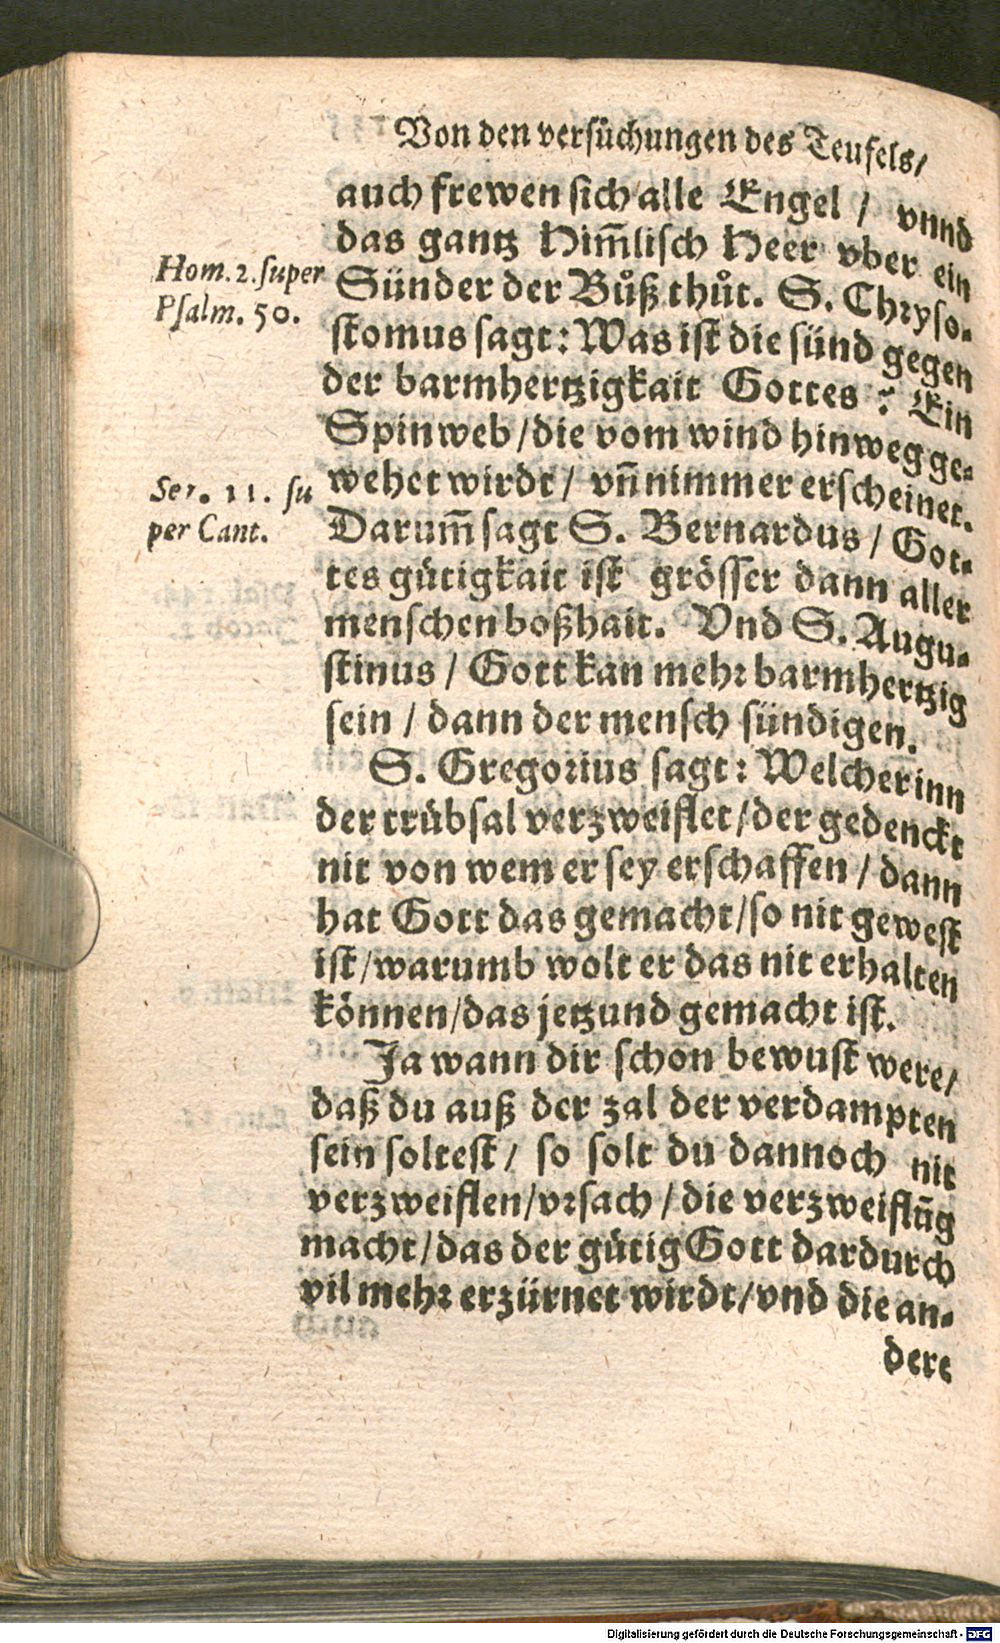 Von den versüchungen des Teufels/
auch frewen sich alle Engel / vnnd
das gantz Him̃lisch Heer vber ein
Hom. 2. super
Psalm. 50.
Sünder der Bůß thůt. S. Chryso-
stomus sagt: Was ist die sünd gegen
der barmhertzigkait Gottes ? Ein
Spinweb/die vom wind hinweg ge-
Ser. 11. su
per Cant.
wehet wirdt/ vñ nimmer erscheinet.
Darum̃ sagt S. Bernardus / Got-
tes gütigkait ist grösser dann aller
menschen boßhait. Vnd S. Augu-
stinus / Gott kan mehr barmhertzig
sein / dann der mensch sündigen.
S. Gregorius sagt: Welcher inn
der trübsal verzweiflet/der gedenckt
nit von wem er sey erschaffen / dann
hat Gott das gemacht/so nit gewest
ist/warumb wolt er das nit erhalten
können/das jetzund gemacht ist.
Ja wann dir schon bewust were/
daß du auß der zal der verdampten
sein soltest/ so solt du dannoch nit
verzweiflen/vrsach / die verzweiflũg
macht/das der gütig Gott dardurch
vil mehr erzürnet wirdt/vnd die an-
dere
Digitalisierung gefördert durch die Deutsche Forschungsgemeinschaft - DFG